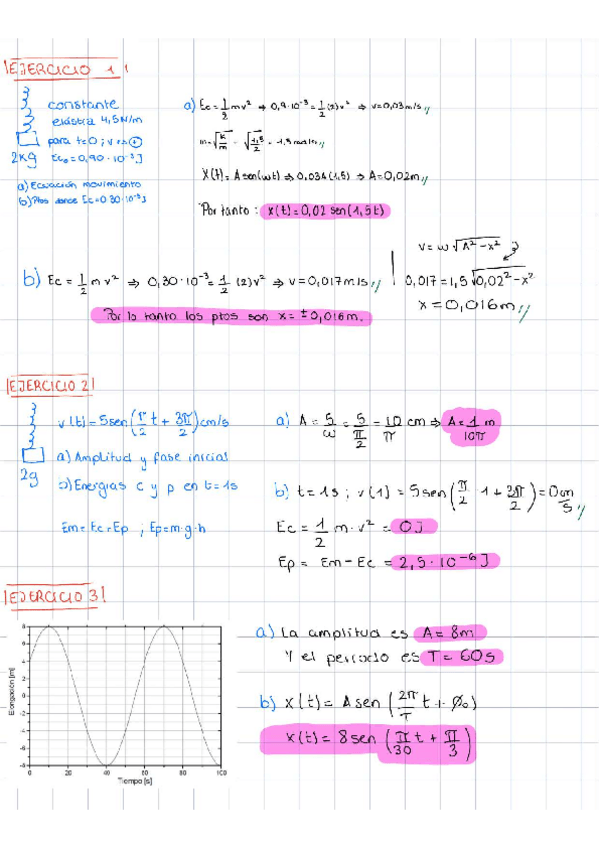 EJERCICIO 1!
constante
elástica 4,5N/m
para t=0; v es +
2Kg Ec₀=0,90·10⁻³J
a) Ecuación movimiento
b) Ptos donde Ec=0.30·10⁻³J
a) Ec = 1/2 mv² ⇒ 0,9·10⁻³ = 1/2 (2)v² ⇒ v=0,03m/s //
X(t)= A sen(ωt) ⇒ 0,034(1,5) ⇒ A=0,02m //
Por tanto: x(t)=0,02 sen(1,5t)
b) Ec = 1/2 m v² ⇒ 0,30·10⁻³ = 1/2 (2)v² ⇒ v=0,017m/s //
v = ω √A²-x²
0,017=1,5√0,02²-x²
x=0,016m //
Por lo tanto los ptos son x= ±0,016m.
EJERCICIO 2!
2g
v(t)=5sen(π/2 t + 3π/2)cm/s
a) Amplitud y fase inicial
b) Energías c y p en t=1s
Em=Ec+Ep ; Ep=m·g·h
a) A = 5/ω = 5/(π/2) = 10/π cm ⇒ A= 1/10π m
b) t=1s ; v(1) = 5sen(π/2 1 + 3π/2) = 0 cm/s //
Ec = 1/2 m·v² = 0J
Ep = Em-Ec = 2,5·10⁻⁶J
EJERCICIO 3!
Elongación [m]
8
6
4
2
0
-2
-4
-6
-8
0 20 40 60 80 100
Tiempo [s]
a) La amplitud es A=8m
Y el periodo es T=60s
b) X(t) = A sen (2π/T t + Ø₀)
x(t) = 8 sen (π/30 t + π/3)